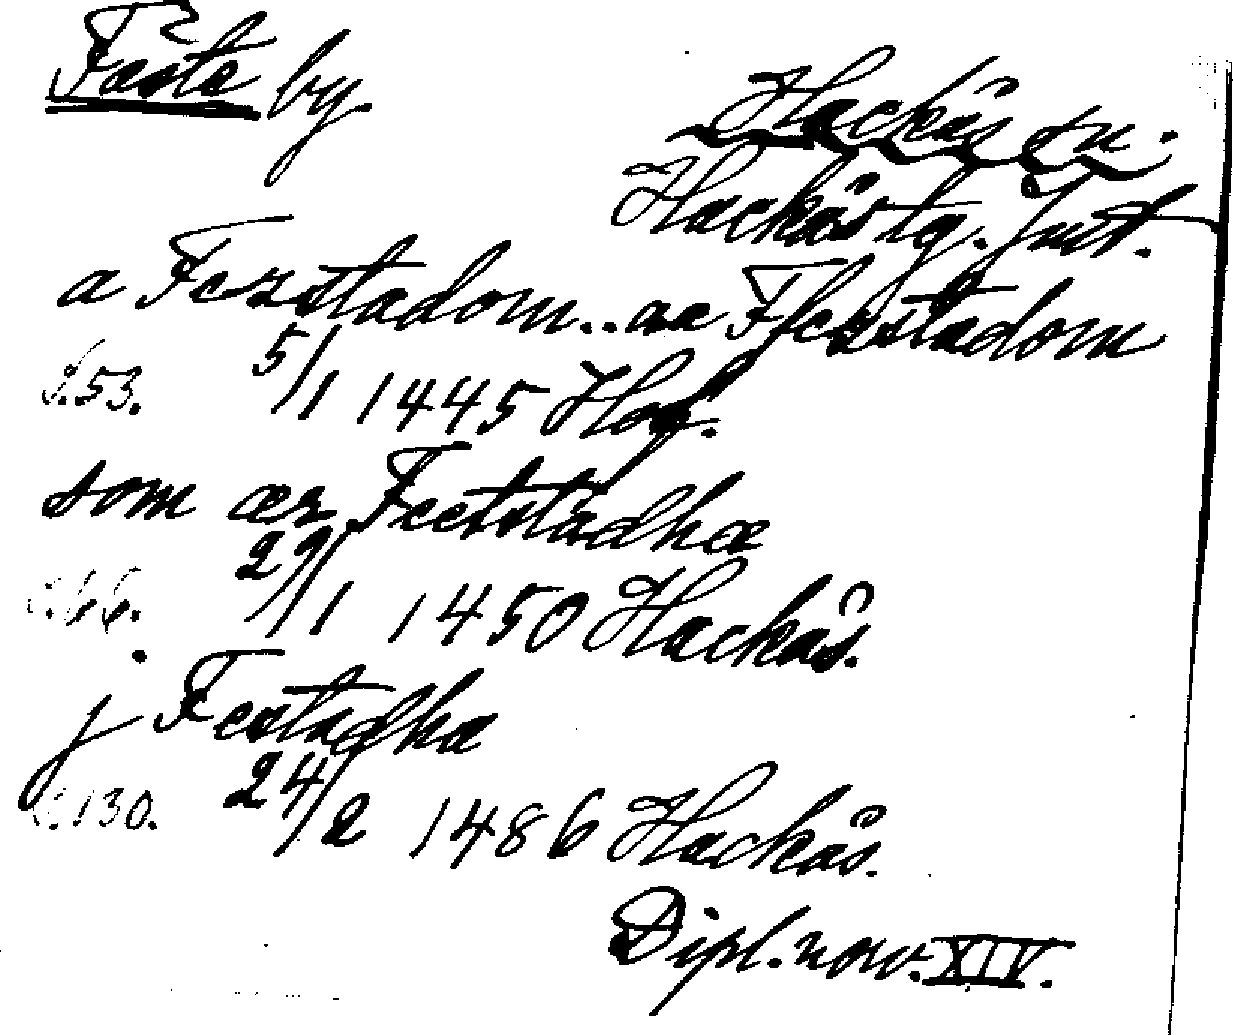 Fäste by.
Hackås sn.
Hackås tg. Jmt.
a Ferstadom .. ae Fferstadom
s. 53. 5/1 1445 Hof.
som ær Feetstadhæ
s. 66. 29/1 1450 Hackås.
j Festadha
s. 130. 24/2 1486 Hackås.
Dipl. norv. XIV.